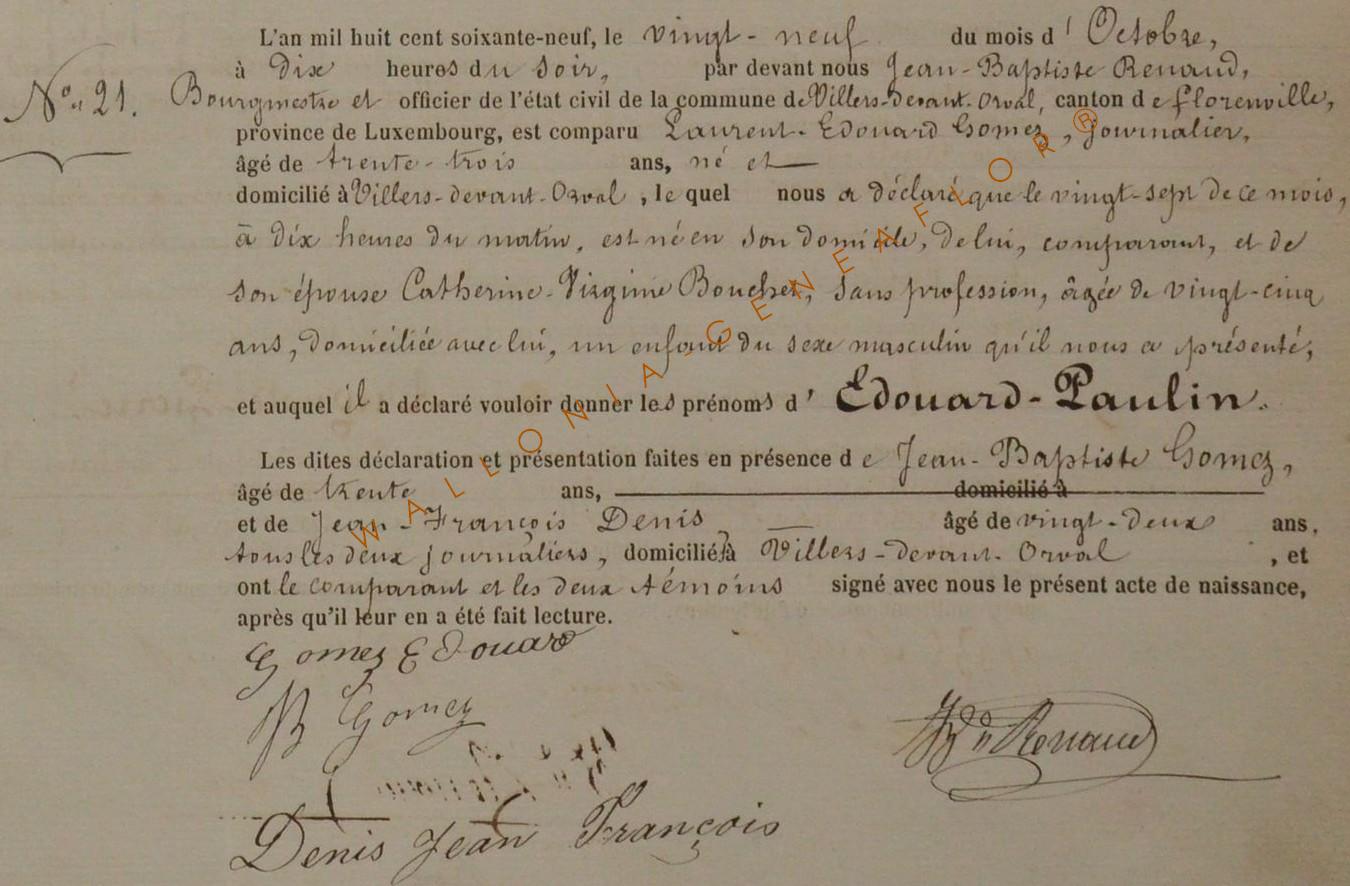 L'an mil huit cent soixante-neuf, le vingt-neuf du mois d'Octobre,
à dix heures du soir, par devant nous Jean-Baptiste Renaud,
No. 21. Bourgmestre et officier de l'état civil de la commune de Villers-devant-Orval, canton de Florenville,
province de Luxembourg, est comparu Laurent-Edouard Gomez, journalier,
âgé de trente-trois ans, né et
domicilié à Villers-devant-Orval, le quel nous a déclaré que le vingt-sept de ce mois,
à dix heures du matin, est né en son domicile, de lui, comparant, et de
son épouse Catherine-Virginie Boucher, sans profession, âgée de vingt-cinq
ans, domiciliée avec lui, un enfant du sexe masculin qu'il nous a présenté,
et auquel il a déclaré vouloir donner les prénoms d'Edouard-Paulin.
Les dites déclaration et présentation faites en présence de Jean-Baptiste Gomez,
âgé de trente ans, domicilié à
et de Jean-François Denis, âgé de vingt-deux ans,
tous les deux journaliers, domiciliés à Villers-devant-Orval, et
ont le comparant et les deux témoins signé avec nous le présent acte de naissance,
après qu'il leur en a été fait lecture.
Gomez Edouard
JB Gomez
JBte Renaud
Denis Jean François
WALLONIA-GENEAFLOR®